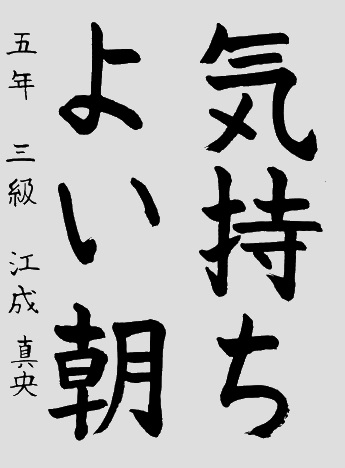 気持ち
よい朝
五年 三級 江成 真央